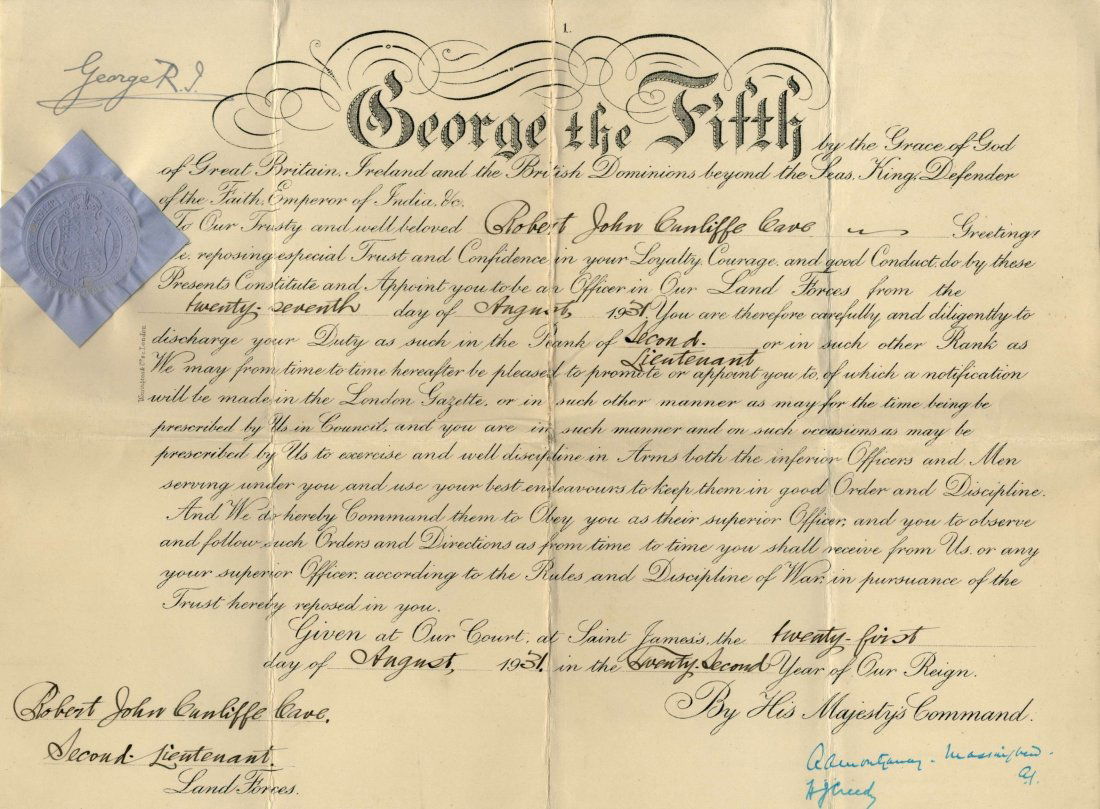 1.
George R.I.
George the Fifth by the Grace of God
of Great Britain, Ireland and the British Dominions beyond the Seas, King, Defender
of the Faith, Emperor of India, &c.
To Our Trusty and well beloved Robert John Cunliffe Cave Greeting:
We, reposing especial Trust and Confidence in your Loyalty, Courage, and good Conduct, do by these
Presents Constitute and Appoint you to be an Officer in Our Land Forces from the
twenty-seventh day of August, 1931. You are therefore carefully and diligently to
discharge your Duty as such in the Rank of Second- or in such other Rank as
Lieutenant
We may from time to time hereafter be pleased to promote or appoint you to, of which a notification
will be made in the London Gazette, or in such other manner as may for the time being be
prescribed by Us in Council, and you are in such manner and on such occasions as may be
prescribed by Us to exercise and well discipline in Arms both the inferior Officers and Men
serving under you and use your best endeavours to keep them in good Order and Discipline.
And We do hereby Command them to Obey you as their superior Officer, and you to observe
and follow such Orders and Directions as from time to time you shall receive from Us, or any
your superior Officer, according to the Rules and Discipline of War, in pursuance of the
Trust hereby reposed in you.
Given at Our Court, at Saint James's, the twenty-first
day of August, 1931, in the Twenty-Second Year of Our Reign.
By His Majesty's Command.
Robert John Cunliffe Cave.
Second-Lieutenant.
Land Forces.
A A Montgomery-Massingberd
H J Creedy